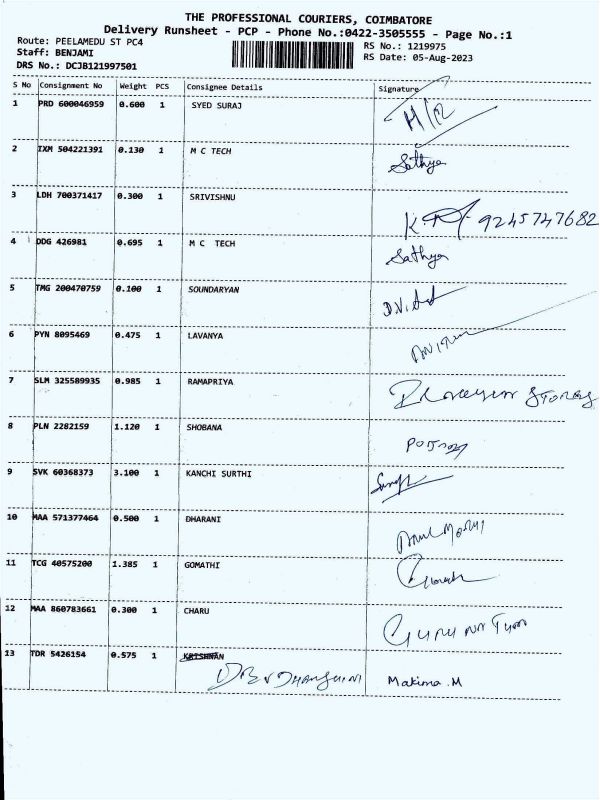 THE PROFESSIONAL COURIERS, COIMBATORE
Delivery Runsheet - PCP - Phone No.:0422-3505555 - Page No.:1
Route: PEELAMEDU ST PC4 RS No.: 1219975
Staff: BENJAMI RS Date: 05-Aug-2023
DRS No.: DCJB121997501
S No Consignment No Weight PCS Consignee Details Signature
1 PRD 600046959 0.600 1 SYED SURAJ H/R
2 IXM 504221391 0.130 1 M C TECH Sathya
3 LDH 700371417 0.300 1 SRIVISHNU 9245747682
4 DDG 426981 0.695 1 M C TECH Sathya
5 TMG 200470759 0.100 1 SOUNDARYAN
6 PYN 8095469 0.475 1 LAVANYA
7 SLM 325589935 0.985 1 RAMAPRIYA STORES
8 PLN 2282159 1.120 1 SHOBANA
9 SVK 60368373 3.100 1 KANCHI SURTHI
10 MAA 571377464 0.500 1 DHARANI
11 TCG 40575200 1.385 1 GOMATHI
12 MAA 860783661 0.300 1 CHARU
13 TDR 5426154 0.575 1 KRISHNAN
Makima.M